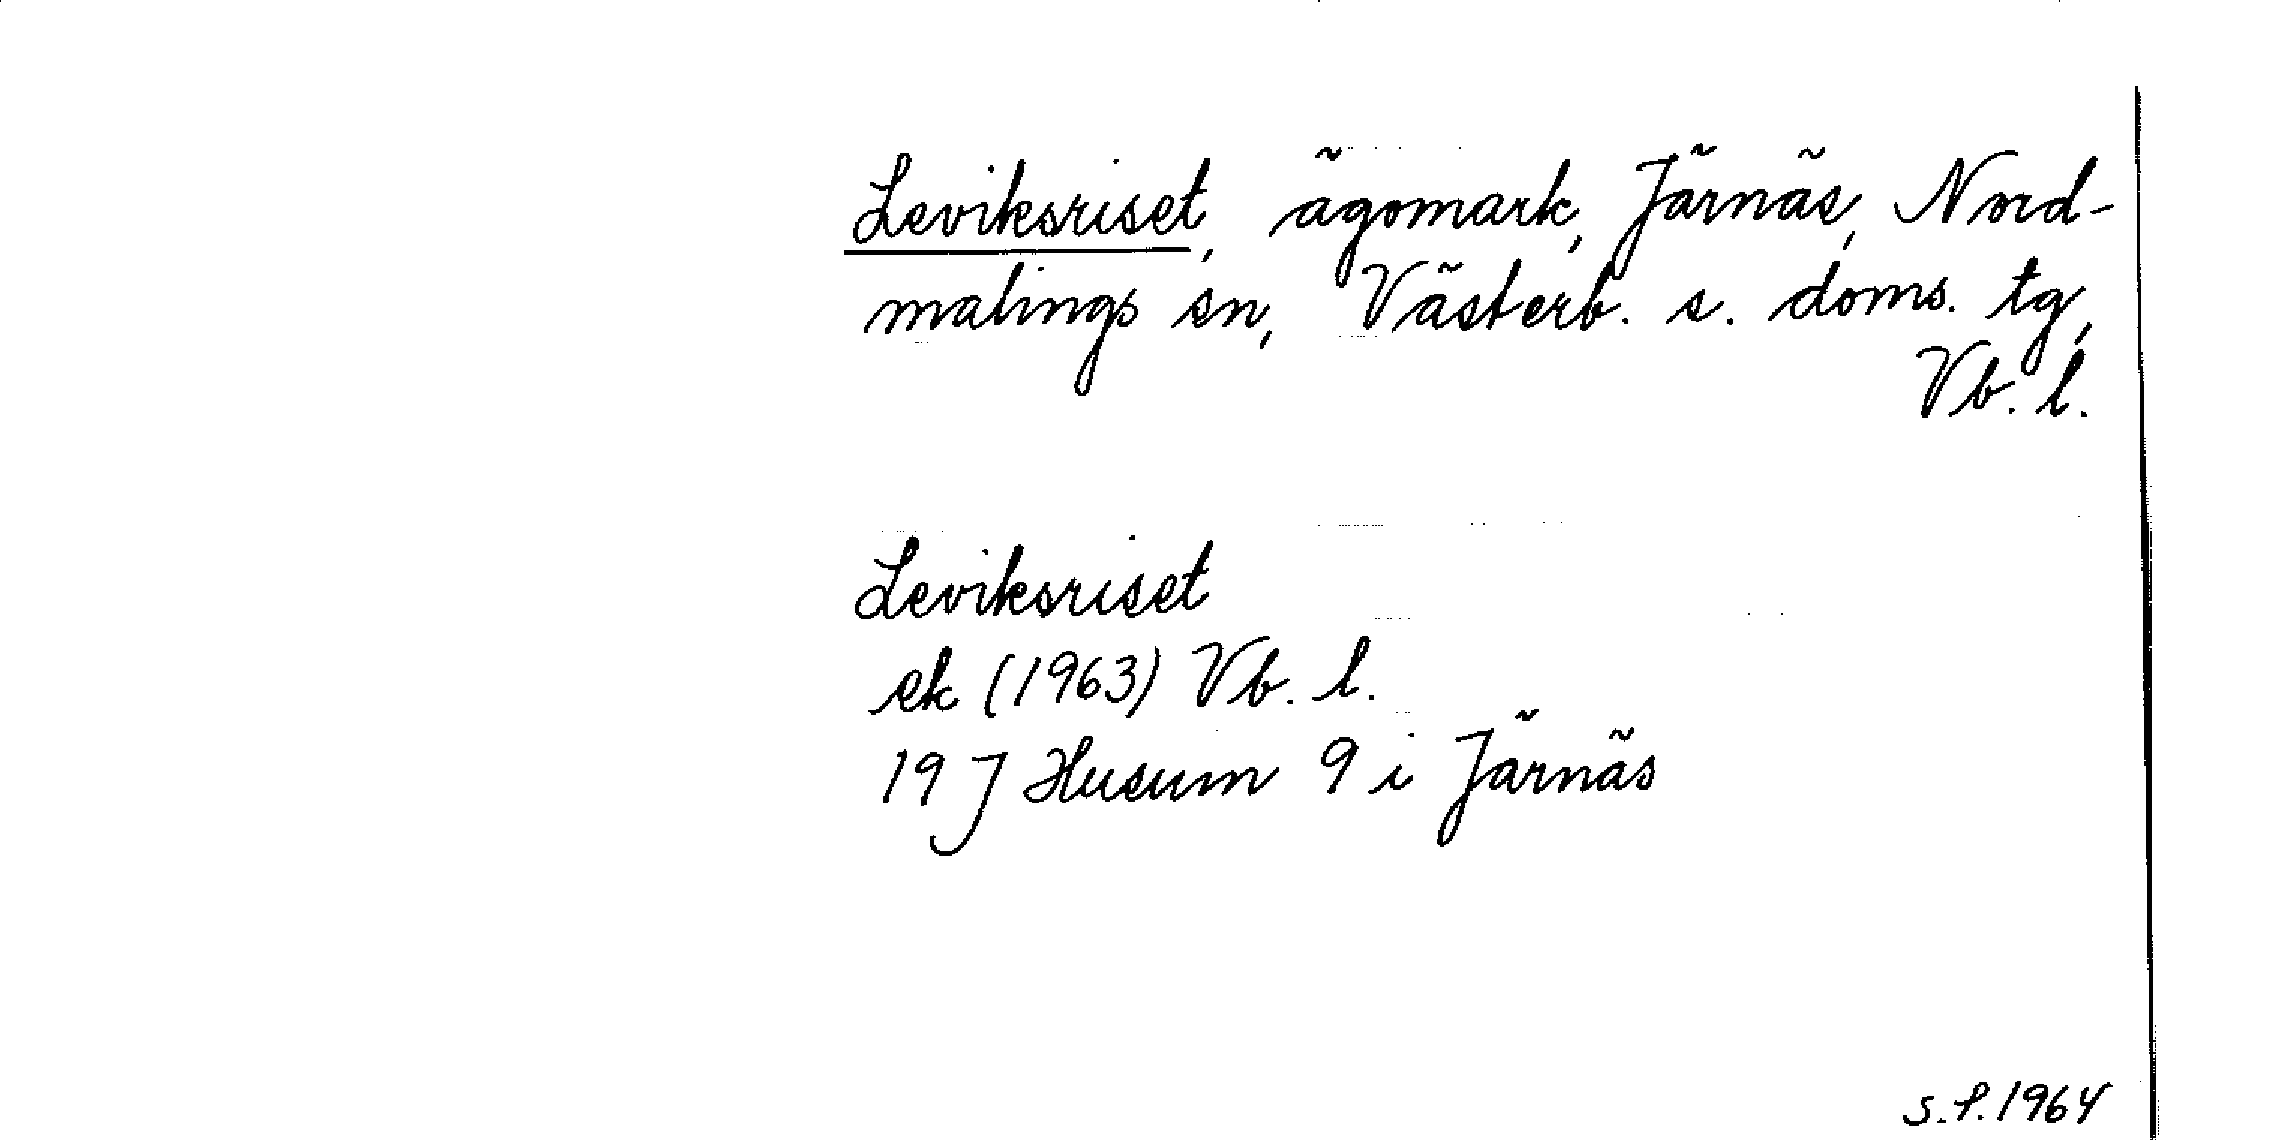 Leviksriset, ägomark, Järnäs, Nord-
malings sn, Västerb. s. doms. tg,
Vb. l.
Leviksriset
ek (1963) Vb. l.
19 J Husum 9 i Järnäs
S.P. 1964